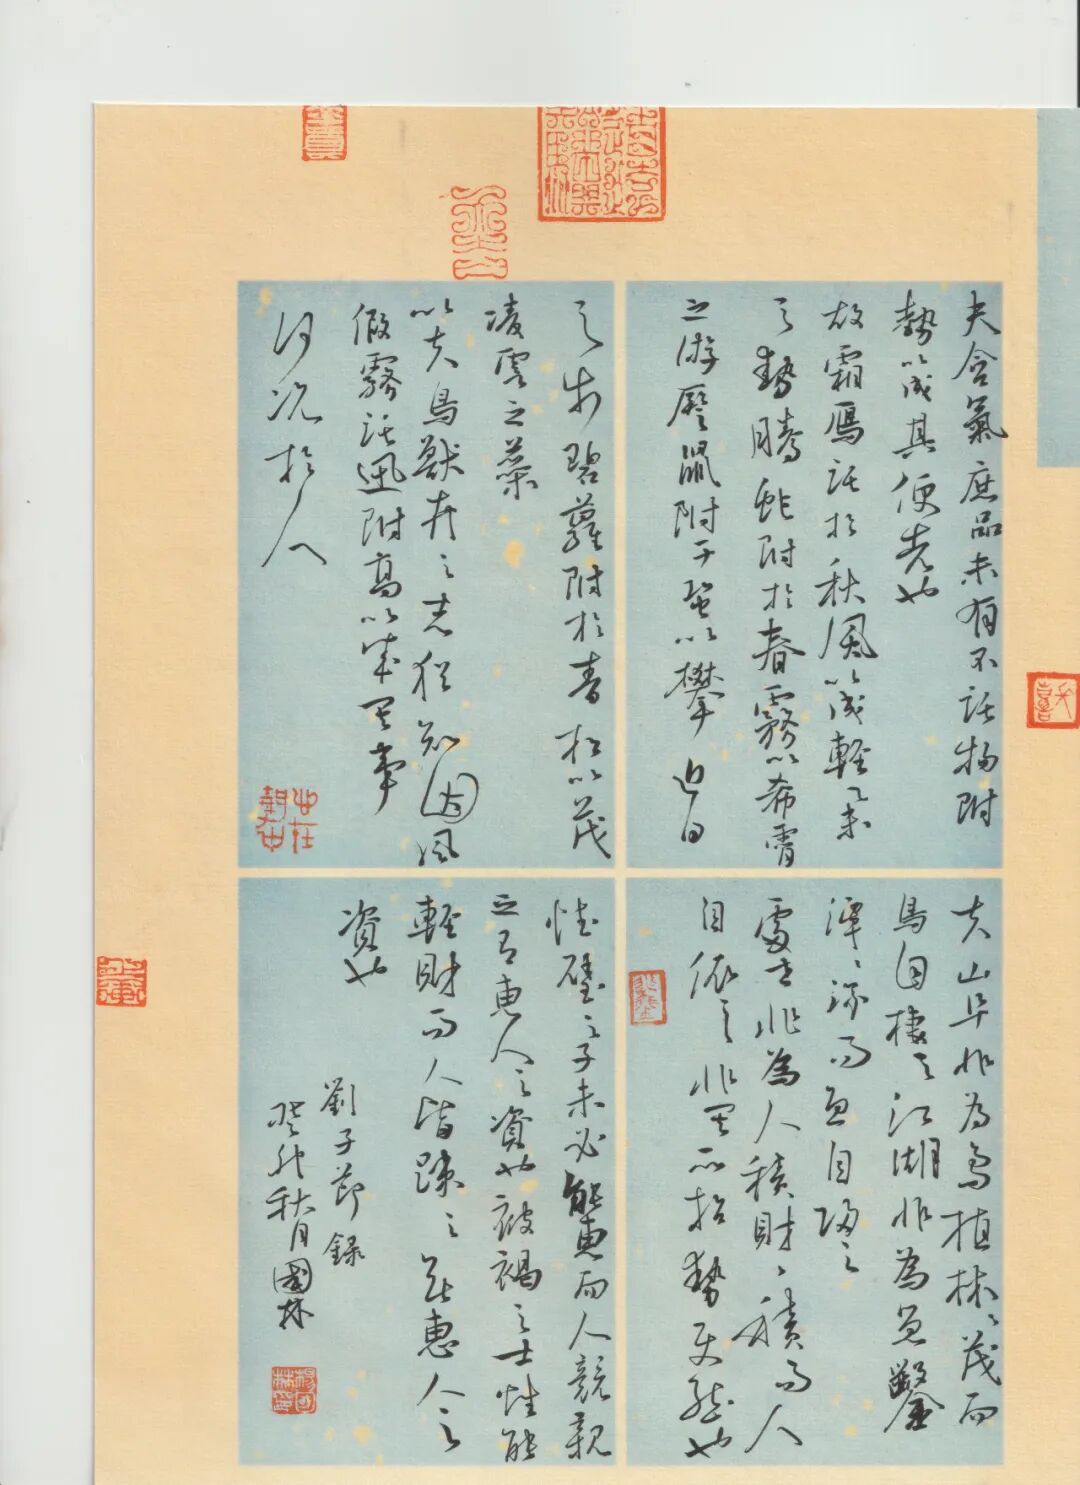 夫含氣庶品未有不託物附
勢以成其便者也
故霜鴈託於秋風以成輕舉
之勢騰蛇附於春霧以希霄
之游蹷鼠附于蛩以攀追日
之步碧蘿附於青松以茂
凌雲之葉
以夫鳥獸卉之志猶知因風
假霧託迅附高以成其事
何況於人
夫山阜非為鳥植林、茂而
鳥自棲之江湖非為魚鑿
潭、深而魚自歸之
處世非為人積財、積而人
自依之非其所招勢使然也
懷璧之子未必能惠而人競親
之有惠人之資也被褐之士性能
輕財而人皆踈之無惠人之
資也
劉子節錄
秋月國林